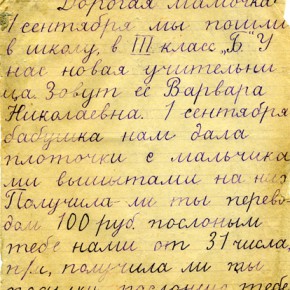 Дорогая мамочка
1 сентября мы пошли
в школу, в III класс „Б“. У
нас новая учительни
ца. Зовут её Варвара
Николаевна. 1 сентября
бабушка нам дала
плоточки с мальчика
ми вышытами на них
Получила-ли ты перево-
дом 100 руб. послоным
тебе нами от 31 числа,
получила ли ты
тебе